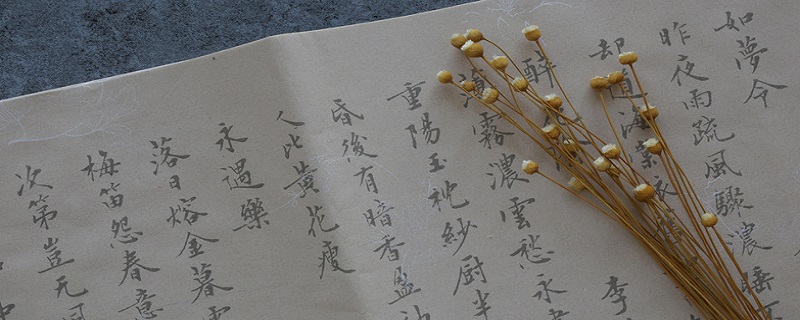 如夢令
昨夜雨疏風驟濃睡不
却道海棠依舊
李
醉花
薄霧濃雲愁永
重陽玉枕紗厨半
昏後有暗香盈
人比黃花瘦
永遇樂
落日熔金暮
梅笛怨春意
次第豈无風